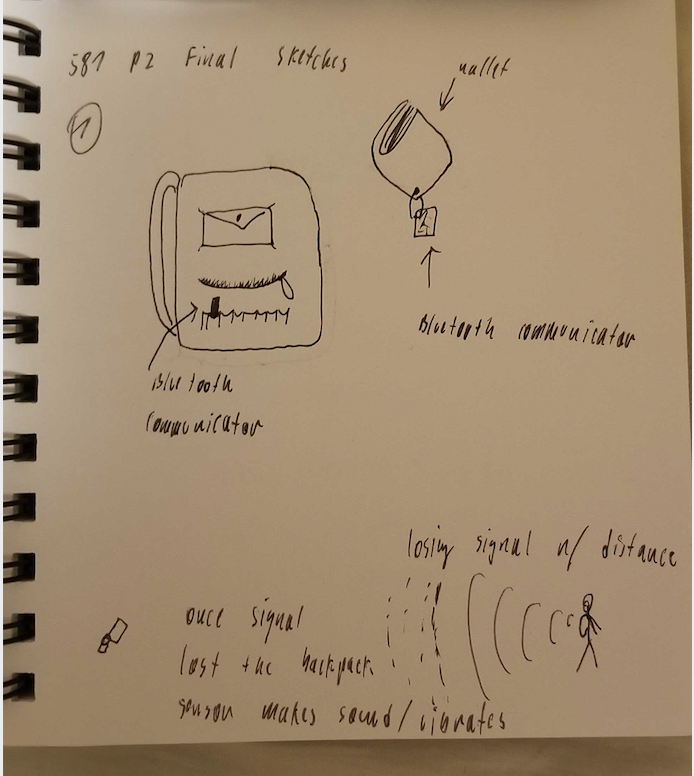 581 P2 Final Sketches
1
wallet
Bluetooth communicator
Bluetooth
communicator
losing signal w/ distance
once signal
lost the backpack
sensor makes sound/vibrates